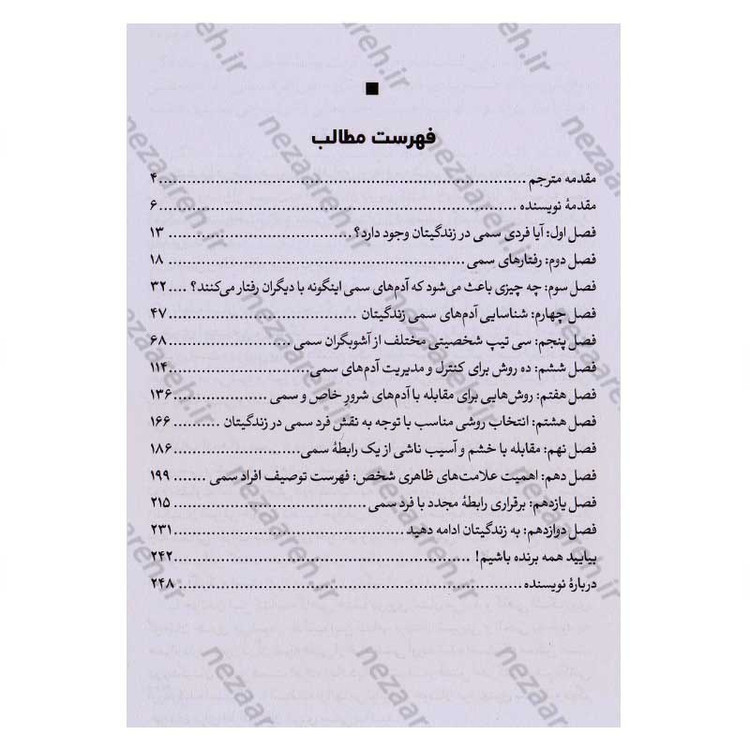 فهرست مطالب
مقدمه مترجم ........ ۴
مقدمهٔ نویسنده ........ ۶
فصل اول: آیا فردی سمی در زندگیتان وجود دارد؟ ........ ۱۳
فصل دوم: رفتارهای سمی ........ ۱۸
فصل سوم: چه چیزی باعث می‌شود که آدم‌های سمی اینگونه با دیگران رفتار می‌کنند؟ .... ۳۲
فصل چهارم: شناسایی آدم‌های سمی زندگیتان ........ ۴۷
فصل پنجم: سی تیپ شخصیتی مختلف از آشوبگران سمی ........ ۶۸
فصل ششم: ده روش برای کنترل و مدیریت آدم‌های سمی ........ ۱۱۴
فصل هفتم: روش‌هایی برای مقابله با آدم‌های شرورِ خاص و سمی ........ ۱۳۶
فصل هشتم: انتخاب روشی مناسب با توجه به نقش فرد سمی در زندگیتان ........ ۱۶۶
فصل نهم: مقابله با خشم و آسیب ناشی از یک رابطهٔ سمی ........ ۱۸۶
فصل دهم: اهمیت علامت‌های ظاهری شخص: فهرست توصیف افراد سمی ....... ۱۹۹
فصل یازدهم: برقراری رابطهٔ مجدد با فرد سمی ........ ۲۱۵
فصل دوازدهم: به زندگیتان ادامه دهید ........ ۲۳۱
بیایید همه برنده باشیم! ........ ۲۴۲
دربارهٔ نویسنده ........ ۲۴۸
nezaareh.ir